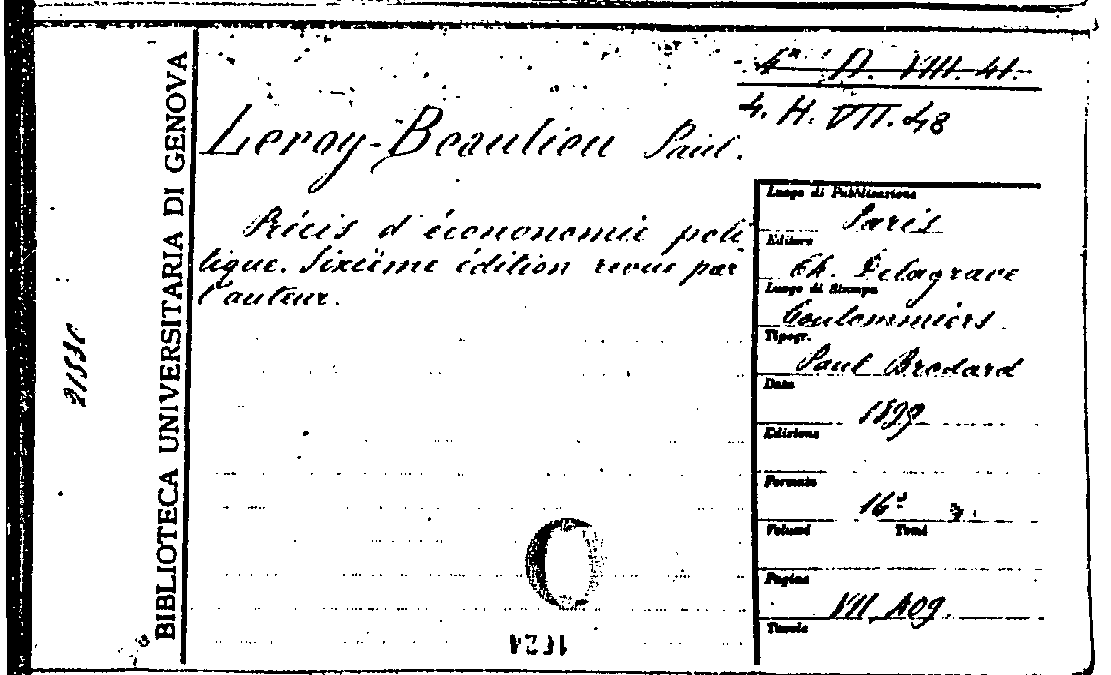 BIBLIOTECA UNIVERSITARIA DI GENOVA
4. H. VII. 48
Leroy-Beaulieu Paul.
Précis d'économie poli
tique. Sixième édition revue par
l'auteur.
Luogo di Pubblicazione
Paris
Editore
Ch. Delagrave
Luogo di Stampa
Coulommiers
Tipogr.
Paul Brodard
Data
1899
Edizione
Formato
16°
Volumi Tomi
Pagine
VII, 409.
Tavole